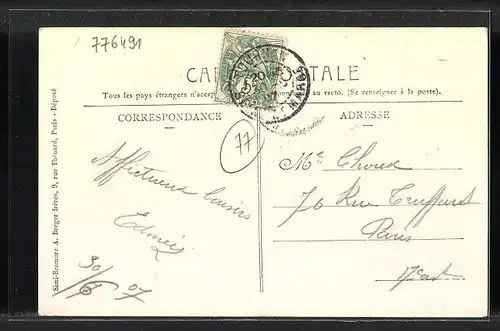 776491
CARTE POSTALE
Tous les pays étrangers n'acceptent au recto. (Se renseigner à la poste).
CORRESPONDANCE
ADRESSE
77
Affectueux baisers
Edmée
30/6 07
Mr Choux
76 Rue Truffaut
Paris
17e
Simi-Bromure A. Breger frères, 9, rue Thénard, Paris - Déposé